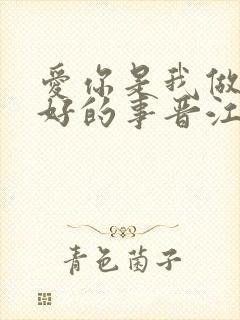 爱你是我做
好的事晋江
青色菌子